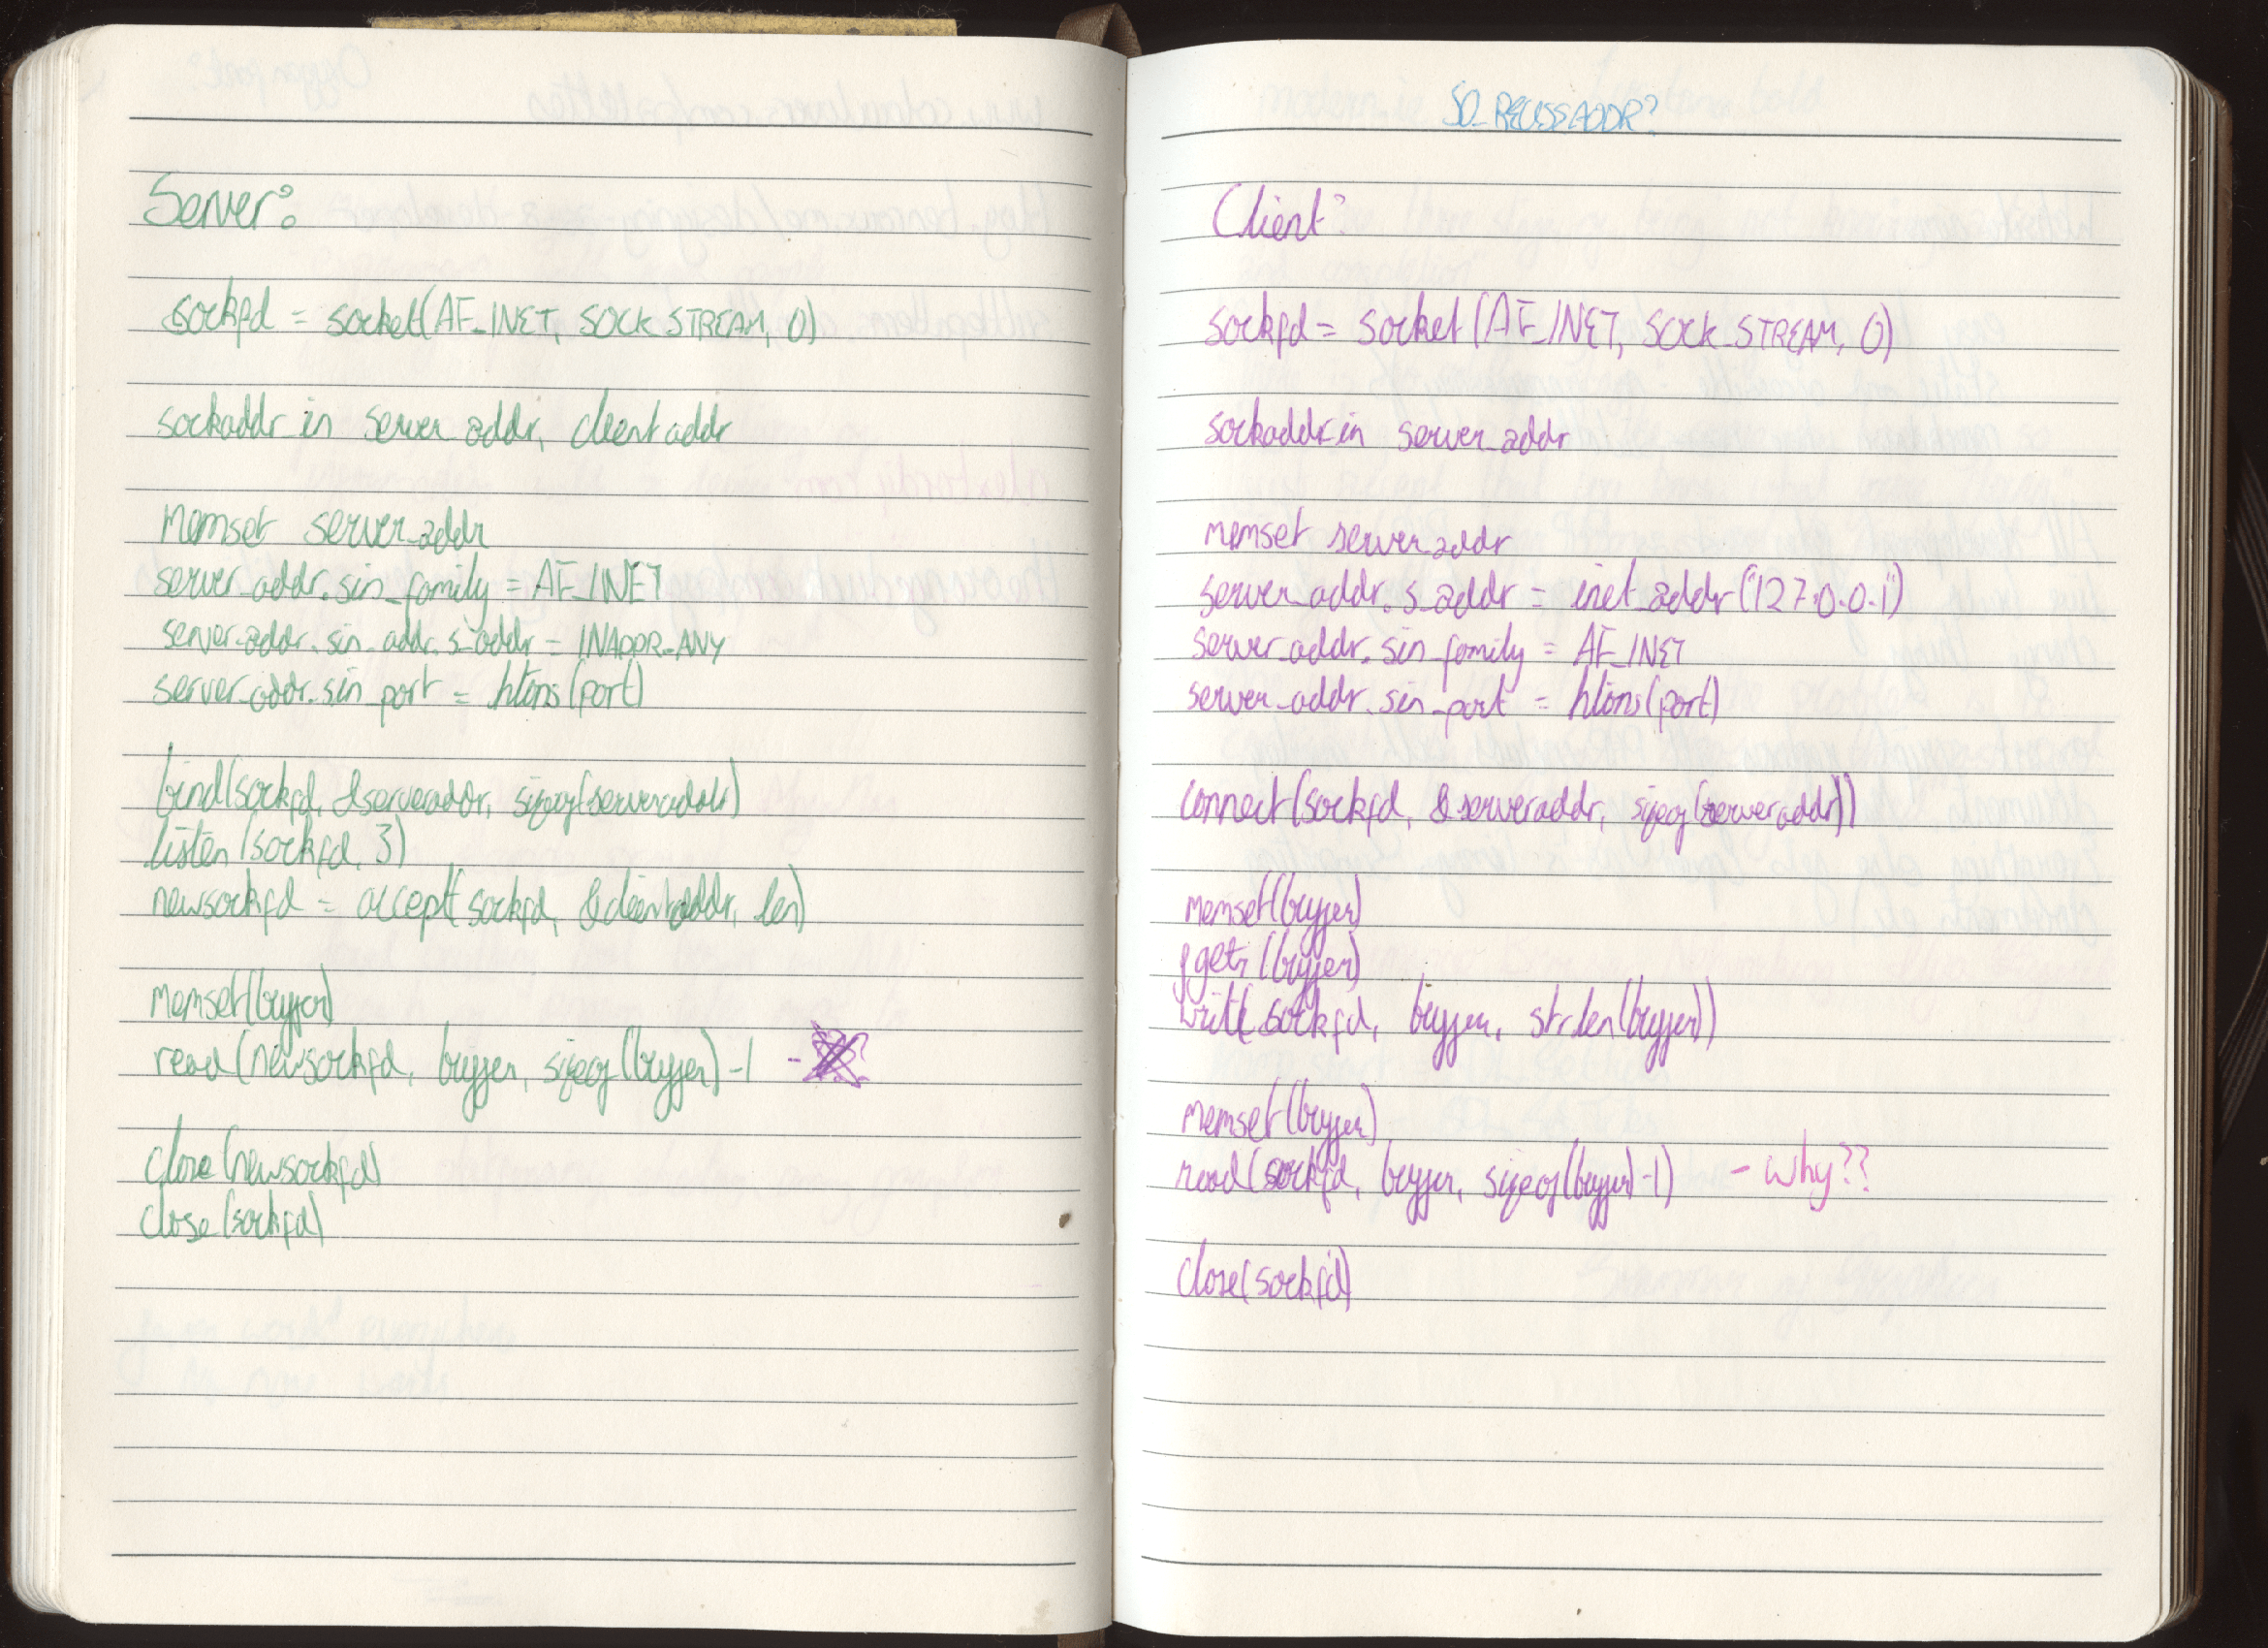 Server:
sockfd = socket(AF_INET, SOCK_STREAM, 0)
sockaddr_in server_addr, clientaddr
memset server_addr
server_addr.sin_family = AF_INET
server_addr.sin_addr.s_addr = INADDR_ANY
server_addr.sin_port = htons(port)
bind(sockfd, &serveraddr, sizeof(serveraddr)
listen(sockfd, 3)
newsockfd = accept(sockfd, &clientaddr, len)
memset(buffer)
read(newsockfd, buffer, sizeof(buffer)-1 -
close(newsockfd)
close(sockfd)
SO_REUSEADDR?
Client:
sockfd = socket(AF_INET, SOCK_STREAM, 0)
sockaddr_in server_addr
memset server_addr
server_addr.s_addr = inet_addr("127.0.0.1")
server_addr.sin_family = AF_INET
server_addr.sin_port = htons(port)
connect(sockfd, &serveraddr, sizeof(serveraddr))
memset(buffer)
fgets(buffer)
write(sockfd, buffer, strlen(buffer))
memset(buffer)
read(sockfd, buffer, sizeof(buffer)-1) - Why??
close(sockfd)